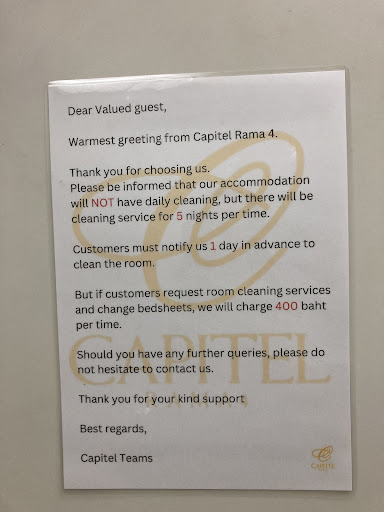 Dear Valued guest,
Warmest greeting from Capitel Rama 4.
Thank you for choosing us.
Please be informed that our accommodation
will NOT have daily cleaning, but there will be
cleaning service for 5 nights per time.
Customers must notify us 1 day in advance to
clean the room.
But if customers request room cleaning services
and change bedsheets, we will charge 400 baht
per time.
Should you have any further queries, please do
not hesitate to contact us.
CAPITEL
Thank you for your kind support
Best regards,
Capitel Teams
CAPITEL